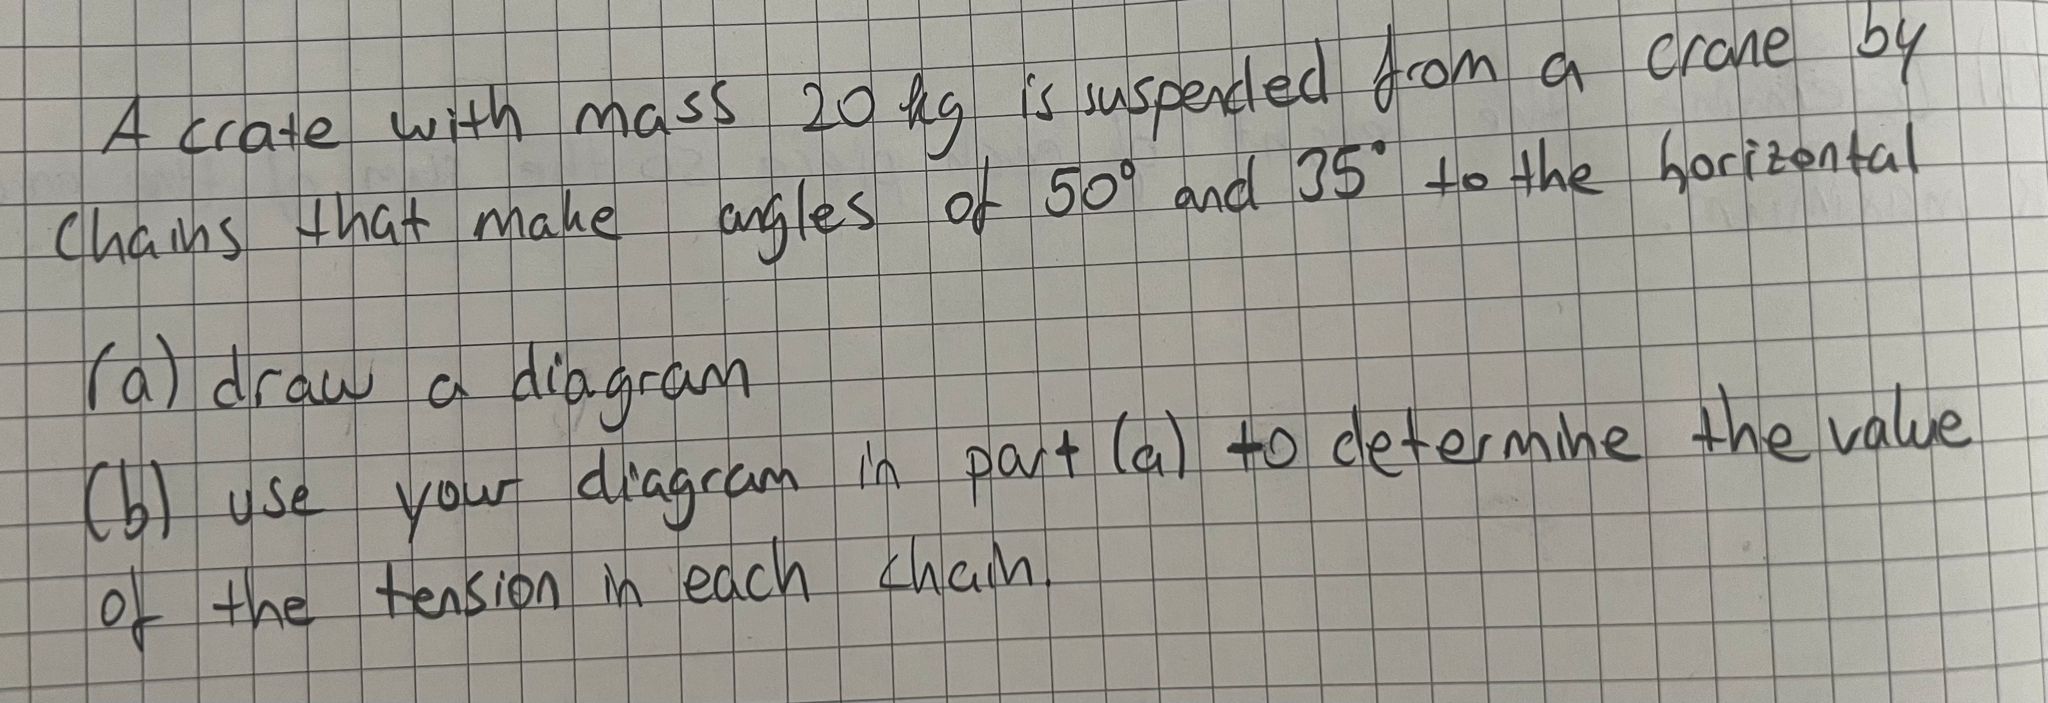 A crate with mass 20 kg is suspended from a crane by
chains that make angles of 50° and 35° to the horizental
(a) draw a diagram
(b) use your diagram in part (a) to determine the value
of the tension in each chain.